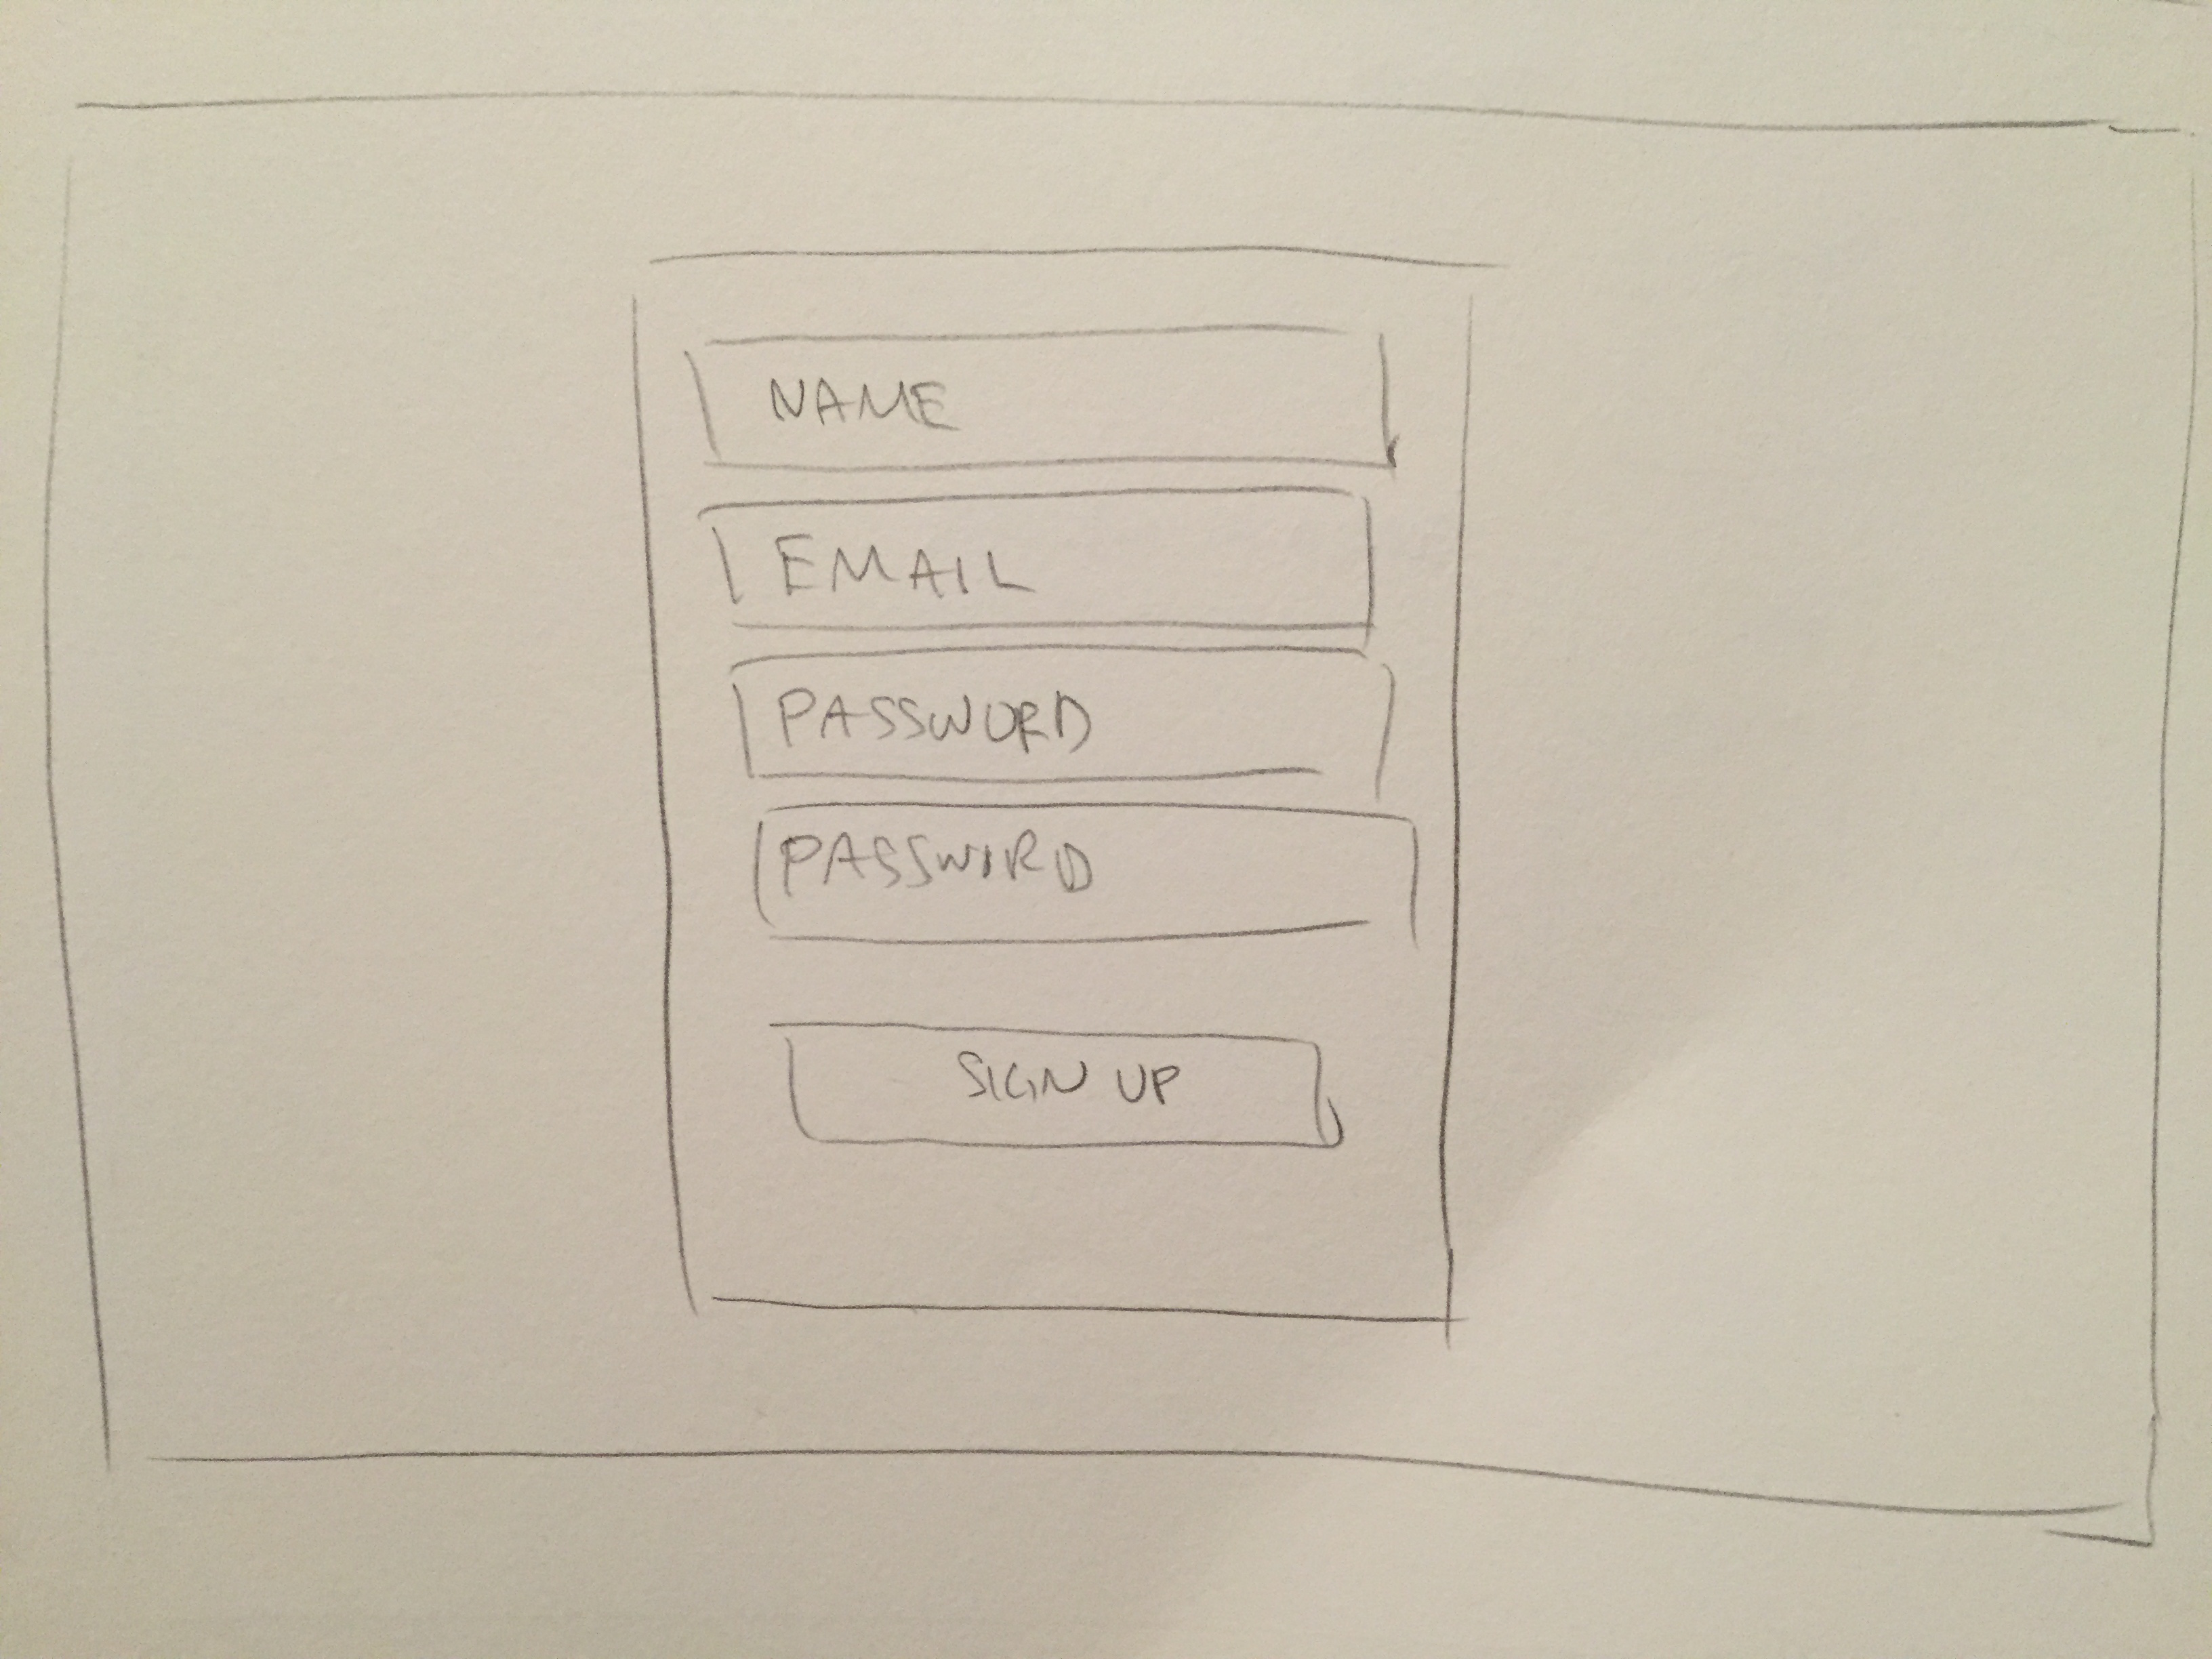 NAME
EMAIL
PASSWORD
PASSWORD
SIGN UP